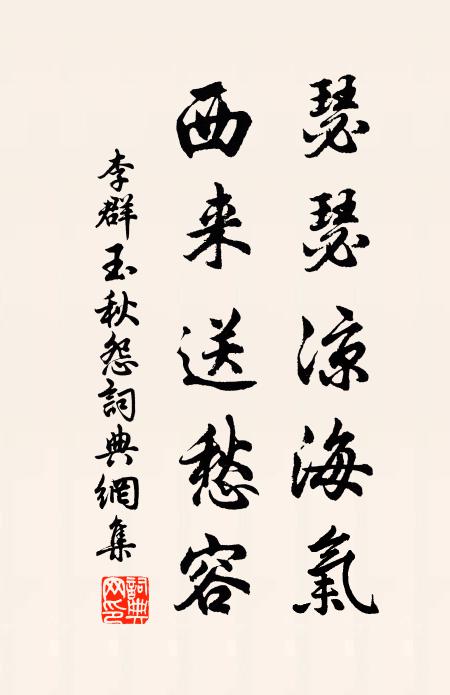 瑟瑟涼海氣
西来送愁容
李群玉秋怨詞典網集
詞典网印